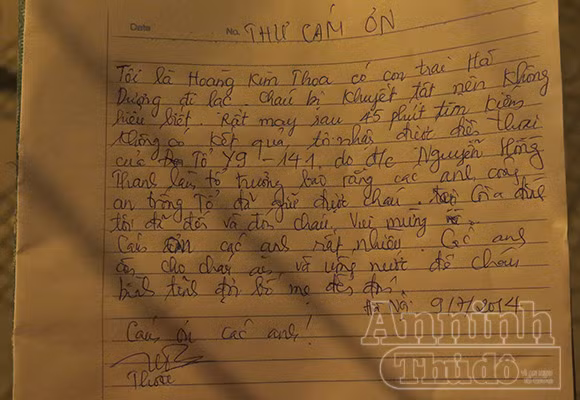 Date
No.
THƯ CẢM ƠN
Tôi là Hoàng Kim Thoa có con trai Hải
Dương đi lạc. Cháu bị khuyết tật nên không
hiểu biết. Rất may sau 45 phút tìm kiếm
không có kết quả, tôi nhận được điện thoại
của Tổ Y9-141 do đ/c Nguyễn Hồng
Thanh làm tổ trưởng báo rằng các anh công
an trong Tổ đã giữ được cháu. Gia đình
tôi đã đến và đón cháu, vui mừng
Cảm ơn các anh rất nhiều. Các anh
cho cháu ăn, và uống nước để cháu
bình tĩnh đợi bố mẹ đến đón.
Hà Nội 9/7/2014
Cảm ơn các anh!
Thoa
Anninh
Thủđô